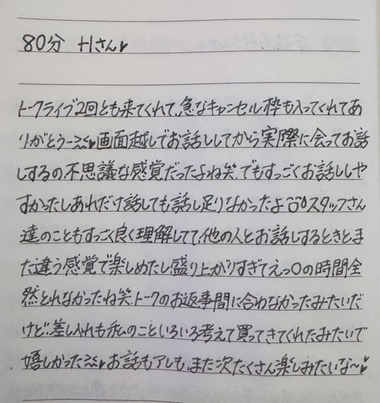 80分 Hさん♥
トークライブ2回とも来てくれて、急なキャンセル枠も入ってくれてあ
りがとう〜💕画面越しでお話ししてから実際に会ってお話
しするの不思議な感覚だったよね笑、でもすっごくお話ししや
すかったしあれだけ話しても話し足りなかったよ スタッフさん
達のこともすっごく良く理解してて、他の人とお話しするときとま
た違う感覚で楽しめたし盛り上がりすぎてえっ〇の時間全
然とれなかったね笑、トークのお返事間に合わなかったみたいだ
けど、差し入れも私のこといろいろ考えて買ってきてくれたみたいで
嬉しかった💕お話もアレも、また次たくさん楽しみたいな〜♥